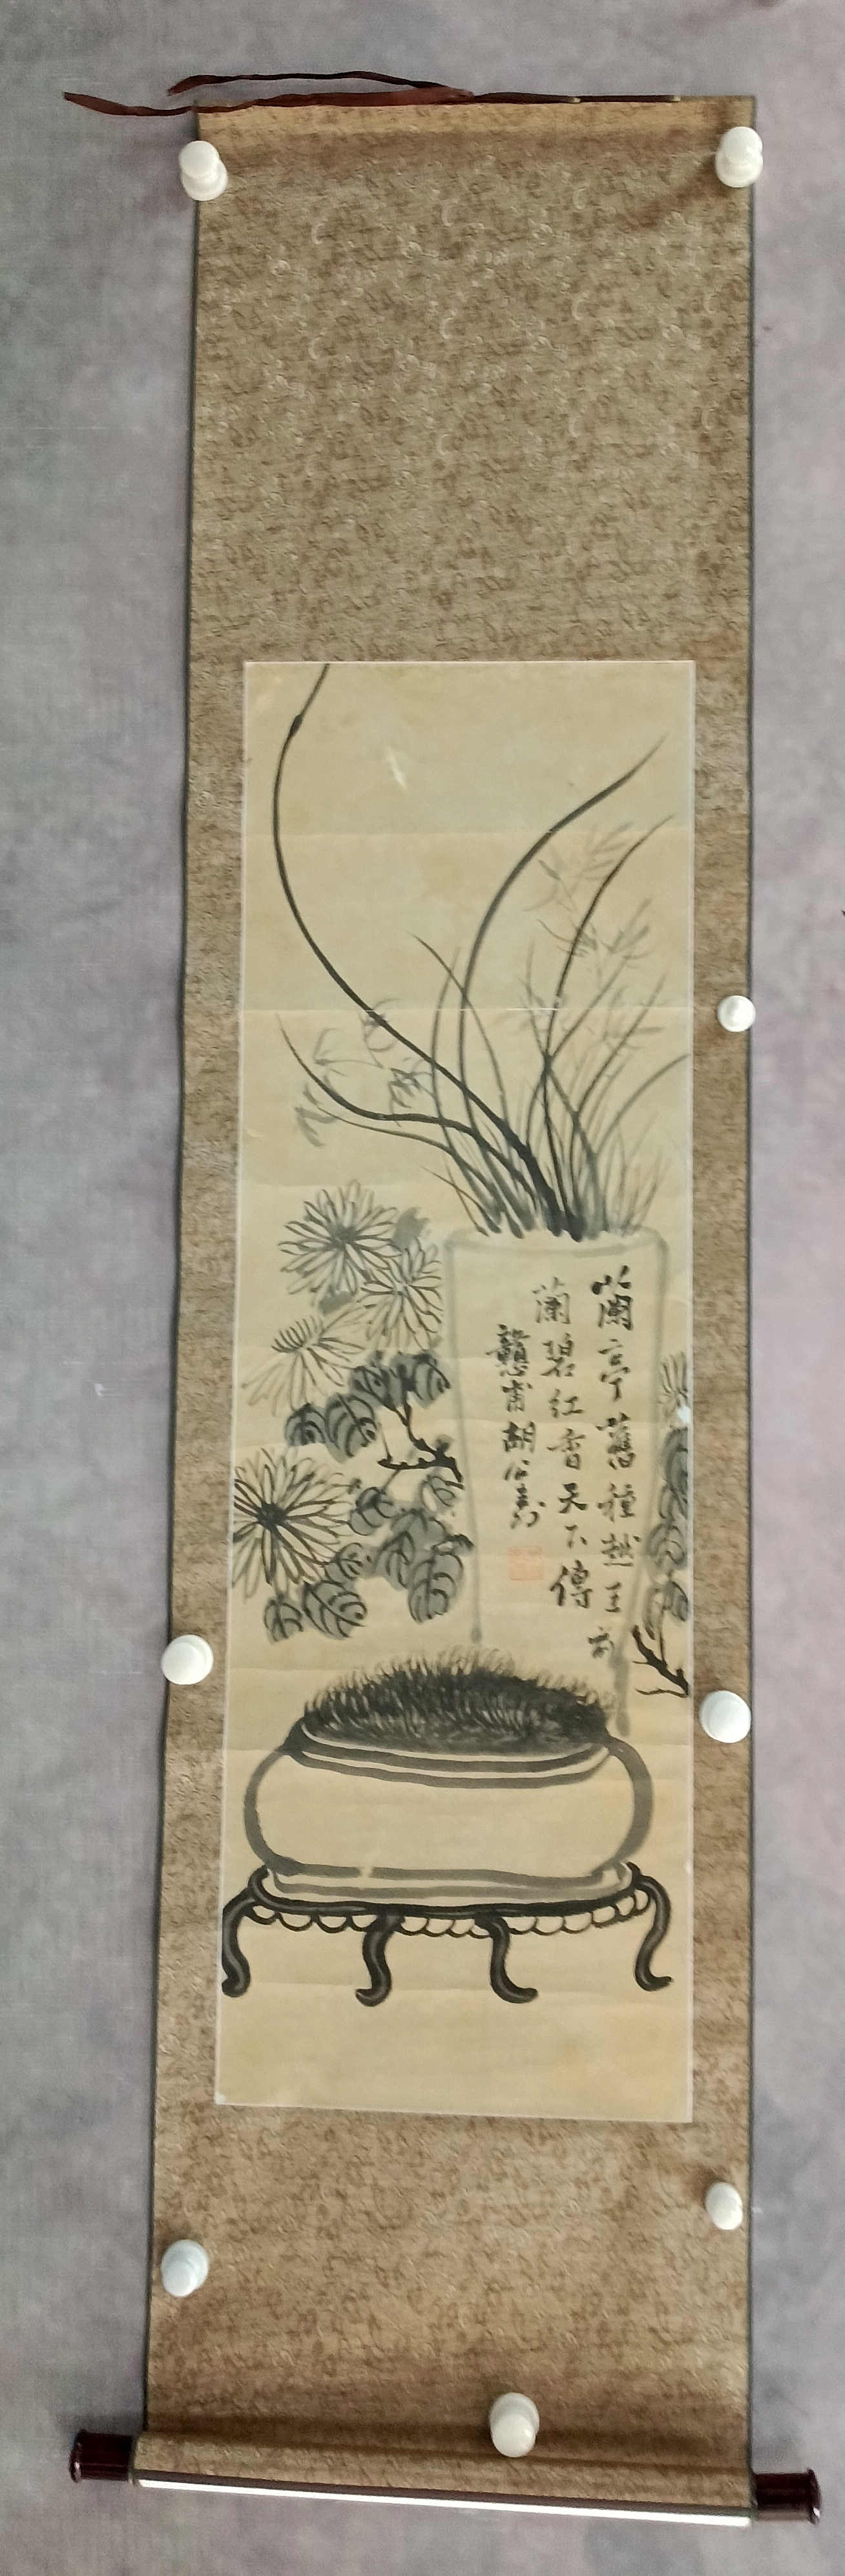 蘭亭舊種越王
蘭碧紅香天下傳
戇甫胡公壽